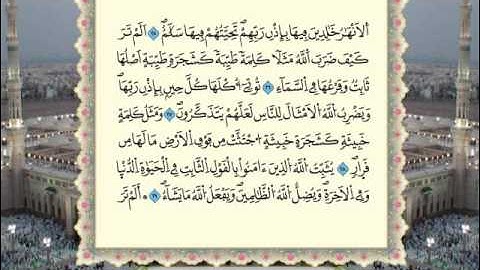 اَ۬لَانْهَٰرُ خَٰلِدِينَ فِيهَا بِإِذْنِ رَبِّهِمْ تَحِيَّتُهُمْ فِيهَا سَلَٰمٌ اَلَمْ تَرَ
كَيْفَ ضَرَبَ اَ۬للَّهُ مَثَلاٗ كَلِمَةٗ طَيِّبَةٗ كَشَجَرَةٖ طَيِّبَةٍ اَصْلُهَا
ثَابِتٞ وَفَرْعُهَا فِے اِ۬لسَّمَآءِ تُوتِےٓ أُكْلَهَا كُلَّ حِينِۢ بِإِذْنِ رَبِّهَا
وَيَضْرِبُ اُ۬للَّهُ اُ۬لَامْثَالَ لِلنَّاسِ لَعَلَّهُمْ يَتَذَكَّرُونَ وَمَثَلُ كَلِمَةٍ
خَبِيثَةٖ كَشَجَرَةٍ خَبِيثَةٍ اِ۟جْتُثَّتْ مِن فَوْقِ اِ۬لَارْضِ مَا لَهَا مِن
قَرَارٖ يُثَبِّتُ اُ۬للَّهُ اُ۬لذِينَ ءَامَنُواْ بِالْقَوْلِ اِ۬لثَّابِتِ فِے اِ۬لْحَيَوٰةِ اِ۬لدُّنْيَا
وَفِے اِ۬لَاخِرَةِ وَيُضِلُّ اُ۬للَّهُ اُ۬لظَّٰلِمِينَ وَيَفْعَلُ اُ۬للَّهُ مَا يَشَآءُ اَلَمْ تَرَ